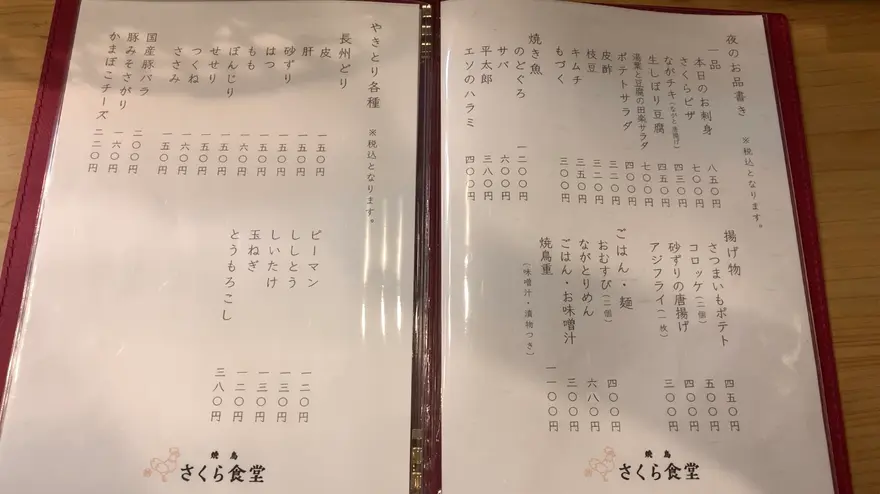 夜のお品書き ※税込となります。
一品
本日のお刺身 八五〇円
さくらピザ 七〇〇円
ながチキ(ながと唐揚げ) 四三〇円
生しぼり豆腐 四五〇円
湯葉と豆腐の田楽サラダ 七〇〇円
ポテトサラダ 四〇〇円
皮酢 三二〇円
枝豆 三二〇円
キムチ 三五〇円
もづく 三〇〇円
焼き魚
のどぐろ 一二〇〇円
サバ 六〇〇円
平太郎 三八〇円
エソのハラミ 四〇〇円
揚げ物
さつまいもポテト 四五〇円
コロッケ(二個) 五〇〇円
砂ずりの唐揚げ 四〇〇円
アジフライ(一枚) 三〇〇円
ごはん・麺
おむすび(二個) 四〇〇円
ながとりめん 六八〇円
ごはん・お味噌汁 三〇〇円
焼鳥重 一一〇〇円
(味噌汁・漬物つき)
焼鳥
さくら食堂
やきとり各種 ※税込となります。
長州どり
皮 一五〇円
肝 一五〇円
砂ずり 一五〇円
はつ 一五〇円
もも 一六〇円
ぼんじり 一五〇円
せせり 一五〇円
つくね 一六〇円
ささみ 一五〇円
国産豚バラ 二〇〇円
豚みそさがり 一六〇円
かまぼこチーズ 二二〇円
ピーマン 一二〇円
ししとう 一三〇円
しいたけ 一三〇円
玉ねぎ 一二〇円
とうもろこし 三八〇円
焼鳥
さくら食堂